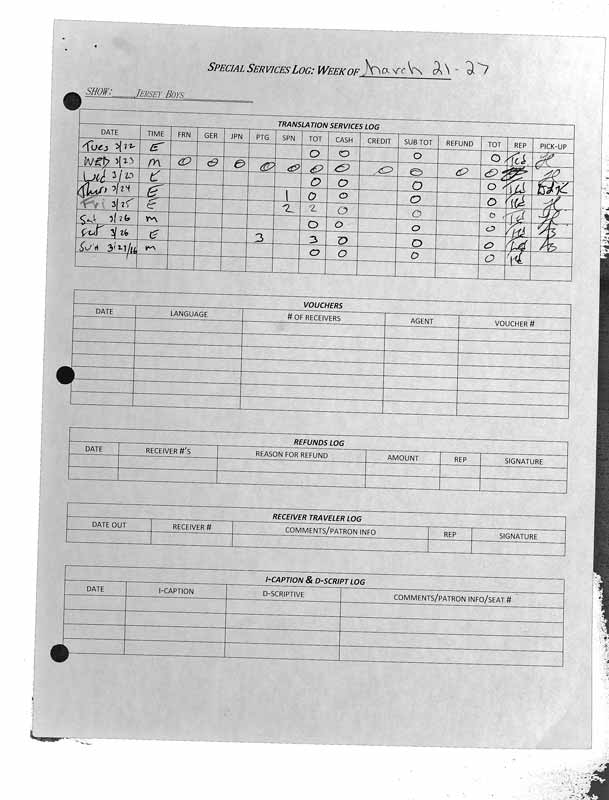 SPECIAL SERVICES LOG: WEEK OF March 21-27
SHOW: JERSEY BOYS
TRANSLATION SERVICES LOG
DATE TIME FRN GER JPN PTG SPN TOT CASH CREDIT SUB TOT REFUND TOT REP PICK-UP
Tues 3/22 E 0 0 0 0 Ted
WED 3/23 M 0 0 0 0 0 0 0 0 0 0 0
Wed 3/23 E 0 0 0 0
Thurs 3/24 E 1 0 0 0 0 Ted
Fri 3/25 E 2 2 0 0 0
Sat 3/26 M 0 0 0 0
Sat 3/26 E 3 3 0 0 0
Sun 3/27/16 M 0 0 0 0
VOUCHERS
DATE LANGUAGE # OF RECEIVERS AGENT VOUCHER #
REFUNDS LOG
DATE RECEIVER #'S REASON FOR REFUND AMOUNT REP SIGNATURE
RECEIVER TRAVELER LOG
DATE OUT RECEIVER # COMMENTS/PATRON INFO REP SIGNATURE
I-CAPTION & D-SCRIPT LOG
DATE I-CAPTION D-SCRIPTIVE COMMENTS/PATRON INFO/SEAT #